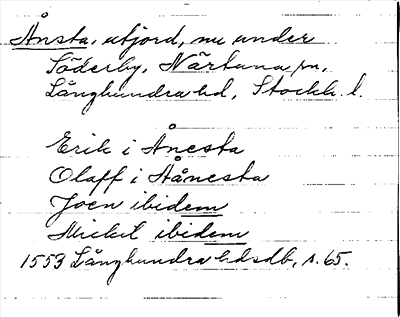 Ånsta, utjord, nu under
Söderby, Närtuna sn,
Långhundra hd, Stockh. l.
Erik i Ånesta
Olaff i Hånesta
Joen ibidem
Mickil ibidem
1553 Långhundra hdsdb, s. 65.